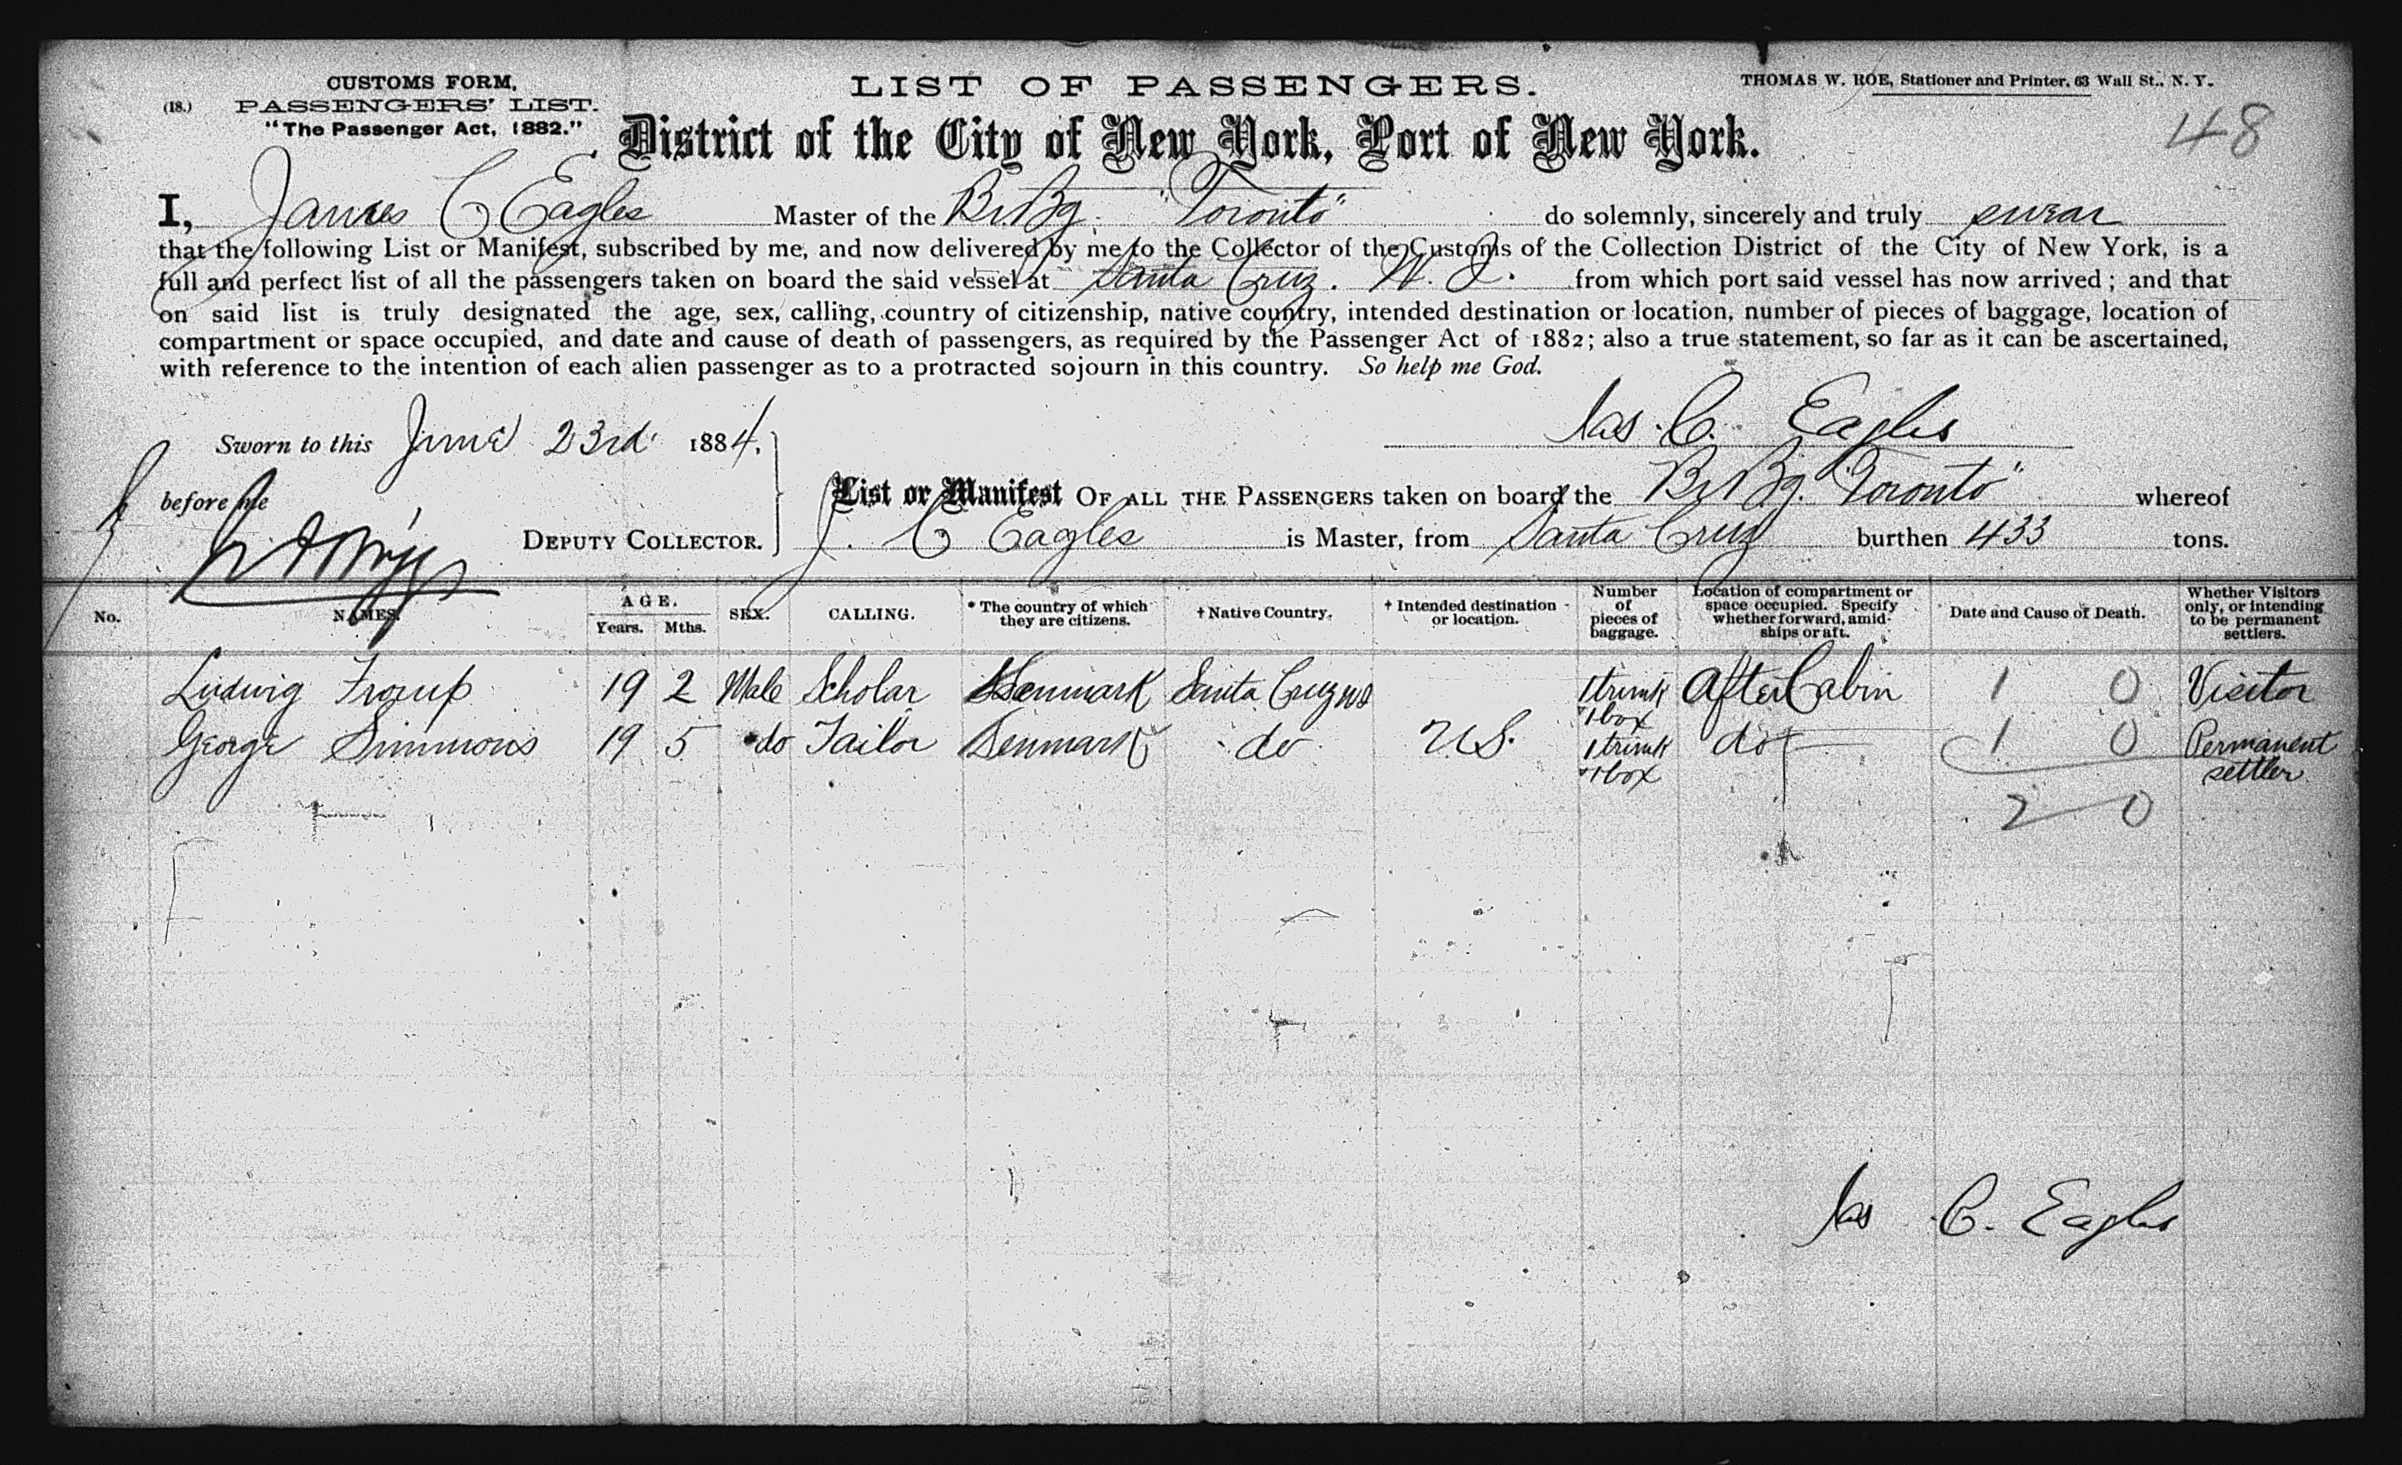 CUSTOMS FORM,
(18.) PASSENGERS' LIST.
"The Passenger Act, 1882."
LIST OF PASSENGERS.
THOMAS W. ROE, Stationer and Printer, 63 Wall St., N. Y.
48
District of the City of New York, Port of New York.
I, James C Eagles Master of the Br. Bg. "Toronto" do solemnly, sincerely and truly swear
that the following List or Manifest, subscribed by me, and now delivered by me to the Collector of the Customs of the Collection District of the City of New York, is a
full and perfect list of all the passengers taken on board the said vessel at Santa Cruz. W. I. from which port said vessel has now arrived; and that
on said list is truly designated the age, sex, calling, country of citizenship, native country, intended destination or location, number of pieces of baggage, location of
compartment or space occupied, and date and cause of death of passengers, as required by the Passenger Act of 1882; also a true statement, so far as it can be ascertained,
with reference to the intention of each alien passenger as to a protracted sojourn in this country. So help me God.
Jas. C. Eagles
Sworn to this June 23rd 1884.
before me
DEPUTY COLLECTOR.
List or Manifest OF ALL THE PASSENGERS taken on board the Br. Bg. "Toronto" whereof
J. C Eagles is Master, from Santa Cruz burthen 433 tons.
No. NAMES. AGE. Years. Mths. SEX. CALLING. * The country of which they are citizens. † Native Country. † Intended destination or location. Number of pieces of baggage. Location of compartment or space occupied. Specify whether forward, amidships or aft. Date and Cause of Death. Whether Visitors only, or intending to be permanent settlers.
Ludwig 19 2 Male Scholar Denmark Santa Cruz 1 trunk 1 box After Cabin 1 0 Visitor
George Simmons 19 5 do Tailor Denmark do U.S. 1 trunk 1 box do 1 0 Permanent settler
2 0
Jas C. Eagles